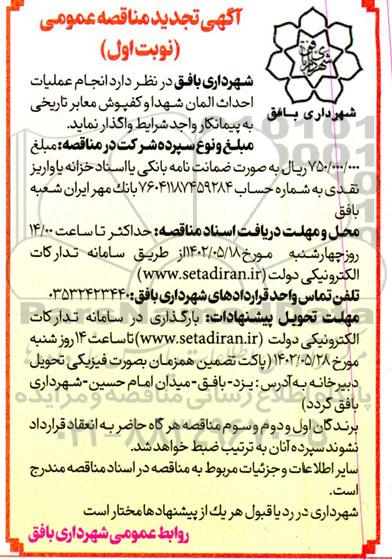 آگهی تجدید مناقصه عمومی
(نوبت اول)
شهرداری بافق
شهرداری بافق در نظر دارد انجام عملیات
احداث المان شهدا و کفپوش معابر تاریخی
به پیمانکار واجد شرایط واگذار نماید.
مبلغ و نوع سپرده شرکت در مناقصه: مبلغ
۷۵۰/۰۰۰/۰۰۰ ریال به صورت ضمانت نامه بانکی یا اسناد خزانه یا واریز
نقدی به شماره حساب ۷۶۰۴۱۱۸۷۴۵۹۲۸۴ بانک مهر ایران شعبه
بافق
محل و مهلت دریافت اسناد مناقصه: حداکثر تا ساعت ۱۴/۰۰
روز چهارشنبه مورخ ۱۴۰۲/۰۵/۱۸ از طریق سامانه تدارکات
الکترونیکی دولت (www.setadiran.ir)
تلفن تماس واحد قراردادهای شهرداری بافق: ۰۳۵۳۲۴۲۳۴۴۰
مهلت تحویل پیشنهادات: بارگذاری در سامانه تدارکات
الکترونیکی دولت (www.setadiran.ir) تا ساعت ۱۴ روز شنبه
مورخ ۱۴۰۲/۰۵/۲۸ (پاکت تضمین همزمان بصورت فیزیکی تحویل
دبیرخانه به آدرس: یزد-بافق-میدان امام حسین-شهرداری
بافق گردد)
برندگان اول و دوم و سوم مناقصه هر گاه حاضر به انعقاد قرارداد
نشوند سپرده آنان به ترتیب ضبط خواهد شد.
سایر اطلاعات و جزئیات مربوط به مناقصه در اسناد مناقصه مندرج
است.
شهرداری در رد یا قبول هر یك از پیشنهادها مختار است
روابط عمومی شهرداری بافق